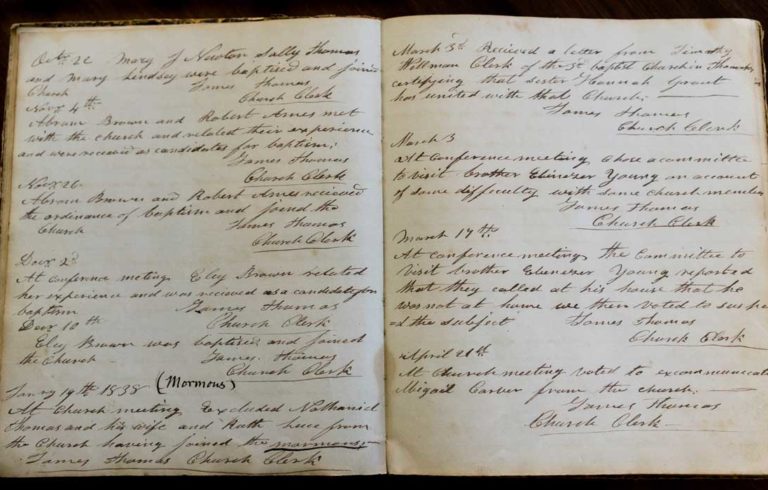 Oct. 22 Mary J Newton Sally Thomas
and Mary Lindsey were baptised and joined
Church James Thomas
Church Clerk
Nov. 4th
Abram Brown and Robert Ames met
with the church and related their experience
and were received as candidates for baptism;
James Thomas
Church Clerk
Nov. 26
Abram Brown and Robert Ames recieved
the ordinance of baptism and joined the
Church James Thomas
Church Clerk
Decr 2d
At conference meting Elcy Brown related
her experience and was recieved as a candidate for
baptism James Thomas
Decr 10th Church Clerk
Elcy Brown was baptised and joined
the Church James Thomas
Church Clerk
Jany 19th 1838 (Mormons)
At Church meeting Excluded Nathaniel
Thomas and his wife and Ruth from
the Church having joined the mormons
James Thomas Church Clerk
March 3d Recieved a letter from Timothy
Wellman Clerk of the 3d baptist Church in Thomaston
certifying that sister Hannah Grant
has united with that Church;
James Thomas
Church Clerk
March 3
At Conference meeting chose a committee
to visit brother Ebenezer Young on account
of some difficulty with some church member
James Thomas
Church Clerk
March 17th
At conference meeting the Committee to
visit brother Ebenezer Young reported
that they called at his house that he
was not at home we then voted to
the subject James Thomas
Church Clerk
April 21st
At Church meeting voted to excommunicate
Abigail Carver from the church;
James Thomas
Church Clerk